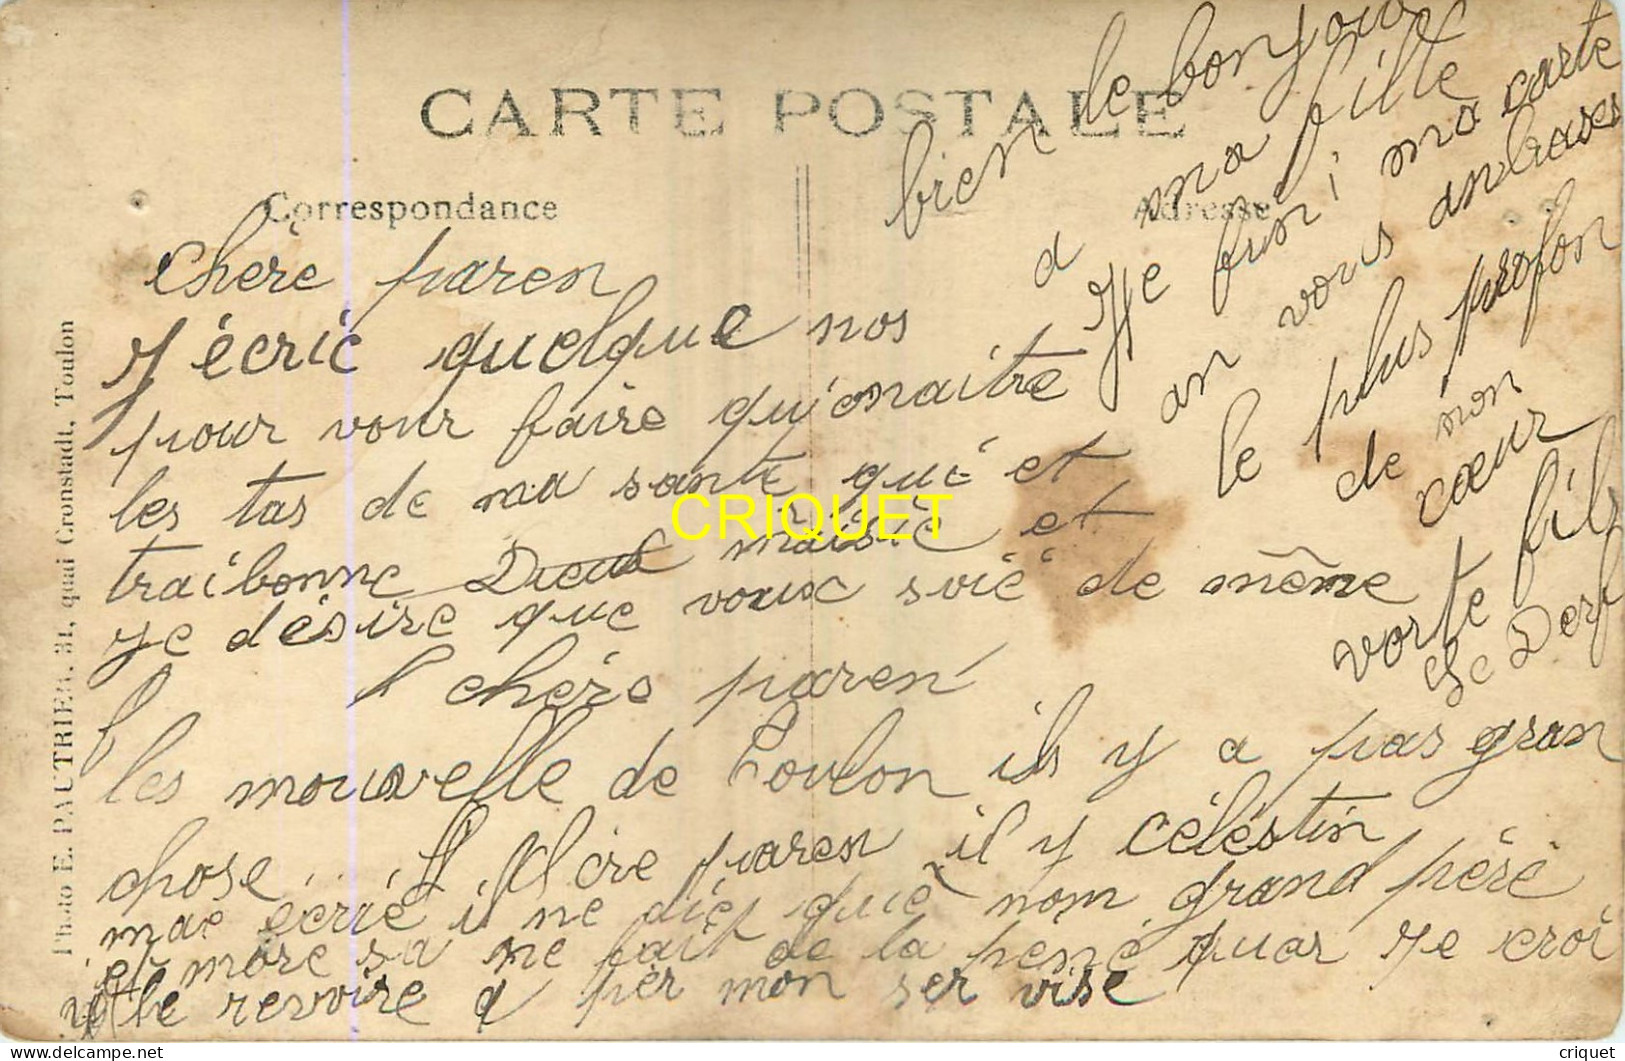 CARTE POSTALE
Correspondance
Adresse
Photo E. PAUTRIER, 31, quai Cronstadt, Toulon
chère paren
J écric quelque nos
pour vour faire qu'onaitre
les tas de ma santé qui et
traibonne Dieux maisic et
je désire que voux soié de même
chère paren
les mouvelle de Toulon ils y a pas gran
chose chère paren il y célestin
mae écrié il ne diés que nom grand pére
et more sa me fait de la pene quar je croi
le revoire a per mon ser vise
bien le bonjour
a ma fille
Je fini ma carte
an vous anbrases
le plus profon
de mon
cœur
vorte fils
CRIQUET
criquet